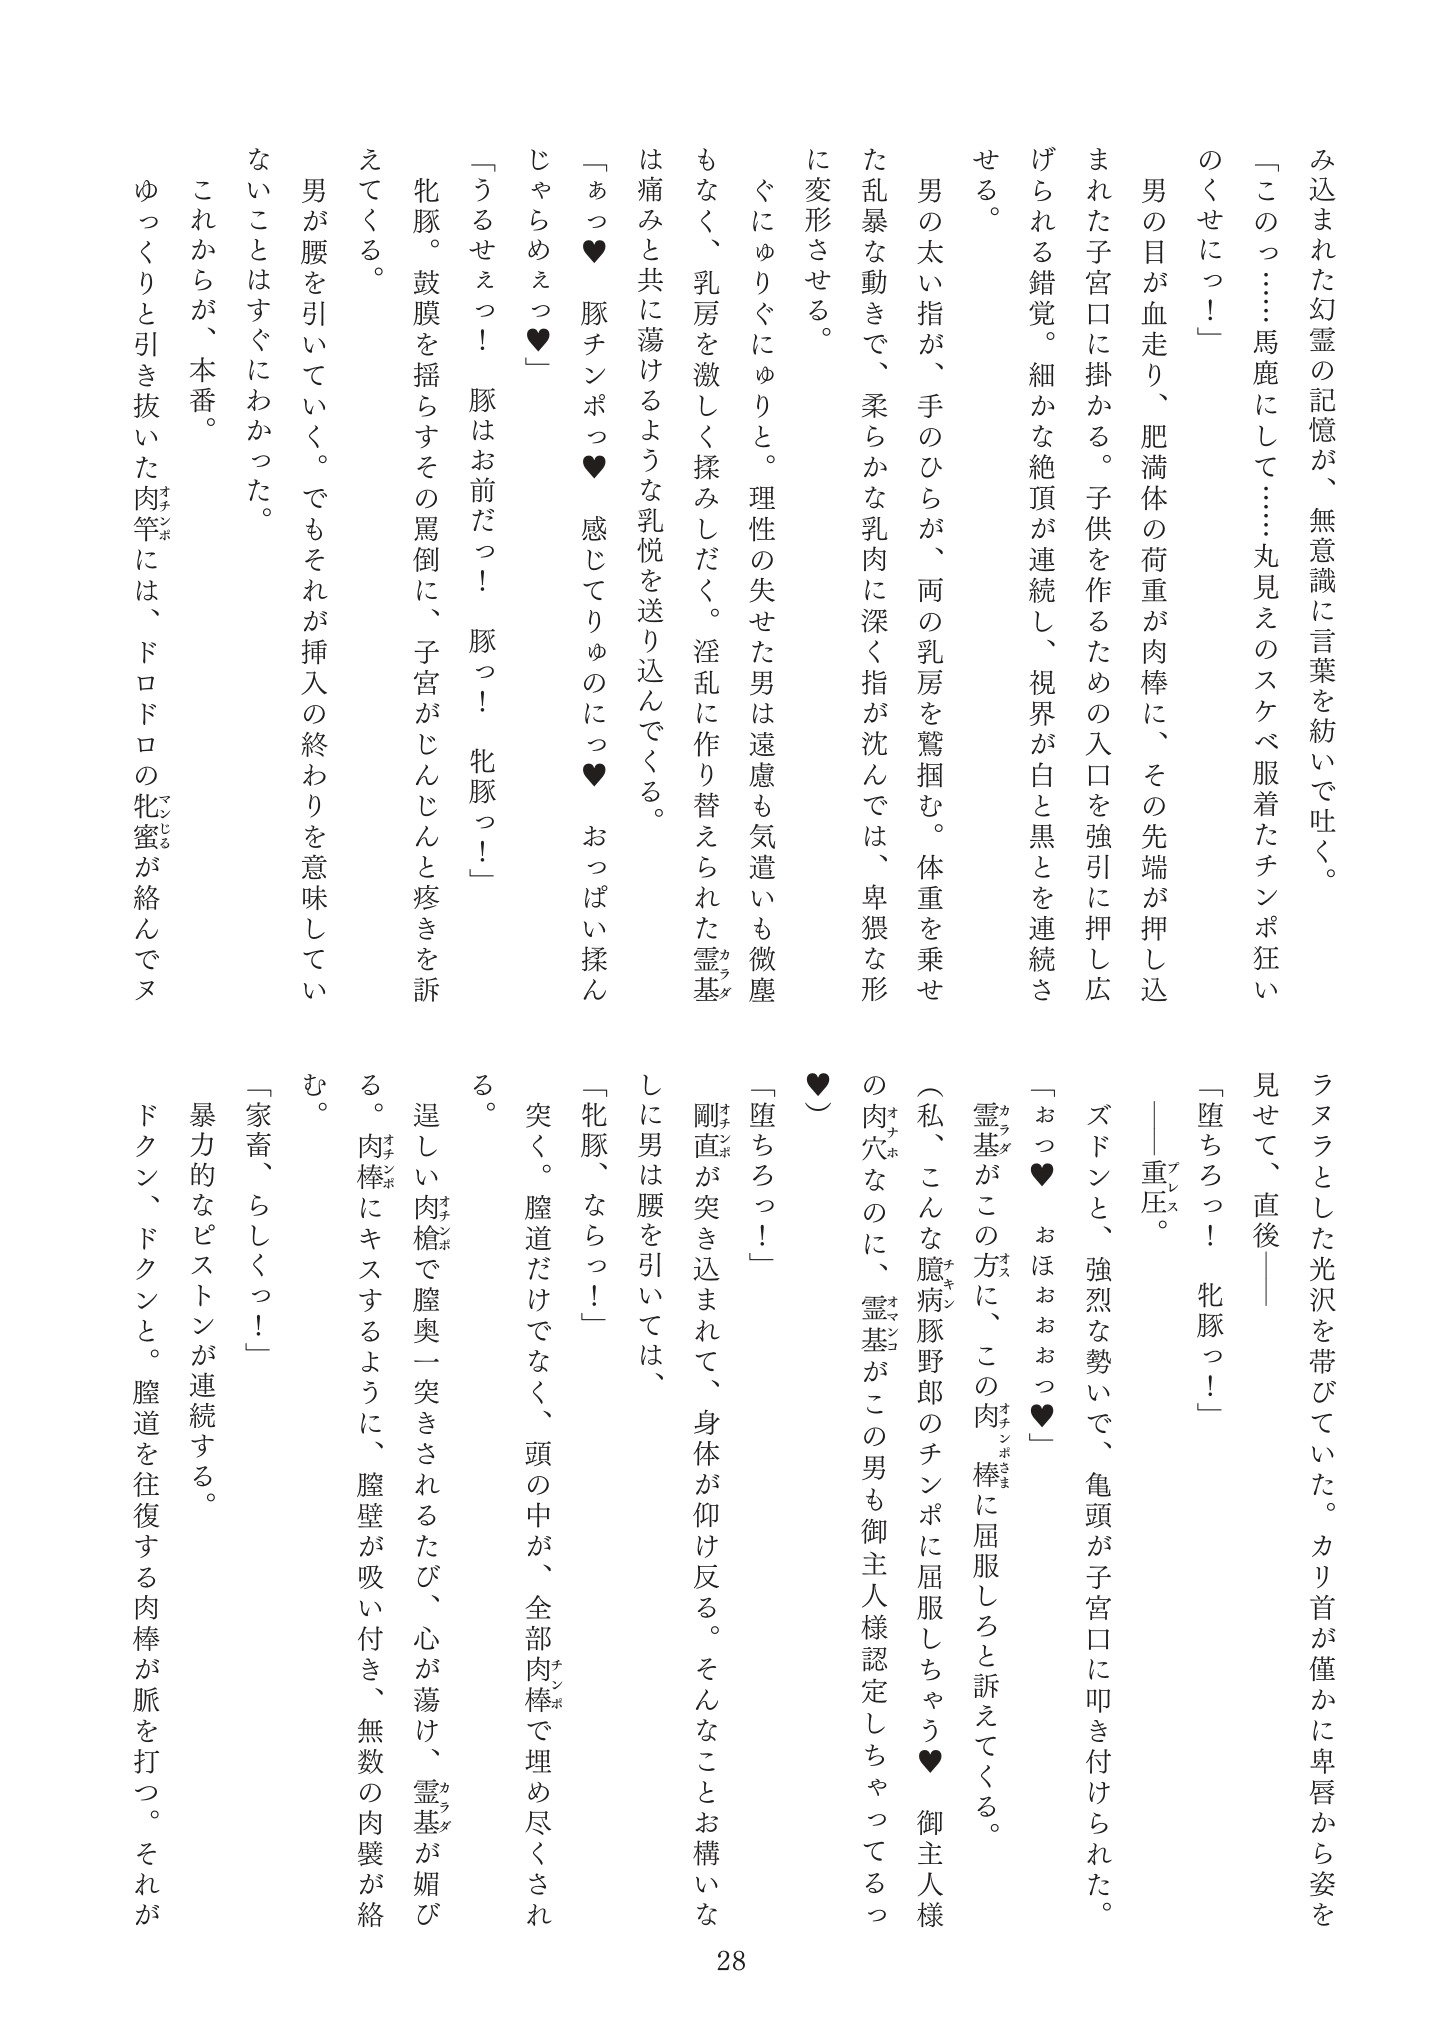 み込まれた幻霊の記憶が、無意識に言葉を紡いで吐く。
「このっ……馬鹿にして……丸見えのスケベ服着たチンポ狂い
のくせにっ！」
男の目が血走り、肥満体の荷重が肉棒に、その先端が押し込
まれた子宮口に掛かる。子供を作るための入口を強引に押し広
げられる錯覚。細かな絶頂が連続し、視界が白と黒とを連続さ
せる。
男の太い指が、手のひらが、両の乳房を鷲掴む。体重を乗せ
た乱暴な動きで、柔らかな乳肉に深く指が沈んでは、卑猥な形
に変形させる。
ぐにゅりぐにゅりと。理性の失せた男は遠慮も気遣いも微塵
もなく、乳房を激しく揉みしだく。淫乱に作り替えられた霊基(カラダ)
は痛みと共に蕩けるような乳悦を送り込んでくる。
「ぁっ♥　豚チンポっ♥　感じてりゅのにっ♥　おっぱい揉ん
じゃらめぇっ♥」
「うるせぇっ！　豚はお前だっ！　豚っ！　牝豚っ！」
牝豚。鼓膜を揺らすその罵倒に、子宮がじんじんと疼きを訴
えてくる。
男が腰を引いていく。でもそれが挿入の終わりを意味してい
ないことはすぐにわかった。
これからが、本番。
ゆっくりと引き抜いた肉竿(オチンポ)には、ドロドロの牝蜜(マンじる)が絡んでヌ
ラヌラとした光沢を帯びていた。カリ首が僅かに卑唇から姿を
見せて、直後――
「堕ちろっ！　牝豚っ！」
――重圧(プレス)。
ズドンと、強烈な勢いで、亀頭が子宮口に叩き付けられた。
「ぉっ♥　ぉほぉぉぉっ♥」
霊基(カラダ)がこの方(オス)に、この肉棒(オチンポさま)に屈服しろと訴えてくる。
（私、こんな臆病(チキン)豚野郎のチンポに屈服しちゃう♥　御主人様
の肉穴(オナホ)なのに、霊基(オマンコ)がこの男も御主人様認定しちゃってるっ
♥）
「堕ちろっ！」
剛直(オチンポ)が突き込まれて、身体が仰け反る。そんなことお構いな
しに男は腰を引いては、
「牝豚、ならっ！」
突く。膣道だけでなく、頭の中が、全部肉棒(チンポ)で埋め尽くされ
る。
逞しい肉槍(オチンポ)で膣奥一突きされるたび、心が蕩け、霊基(カラダ)が媚び
る。肉棒(オチンポ)にキスするように、膣壁が吸い付き、無数の肉襞が絡
む。
「家畜、らしくっ！」
暴力的なピストンが連続する。
ドクン、ドクンと。膣道を往復する肉棒が脈を打つ。それが
28